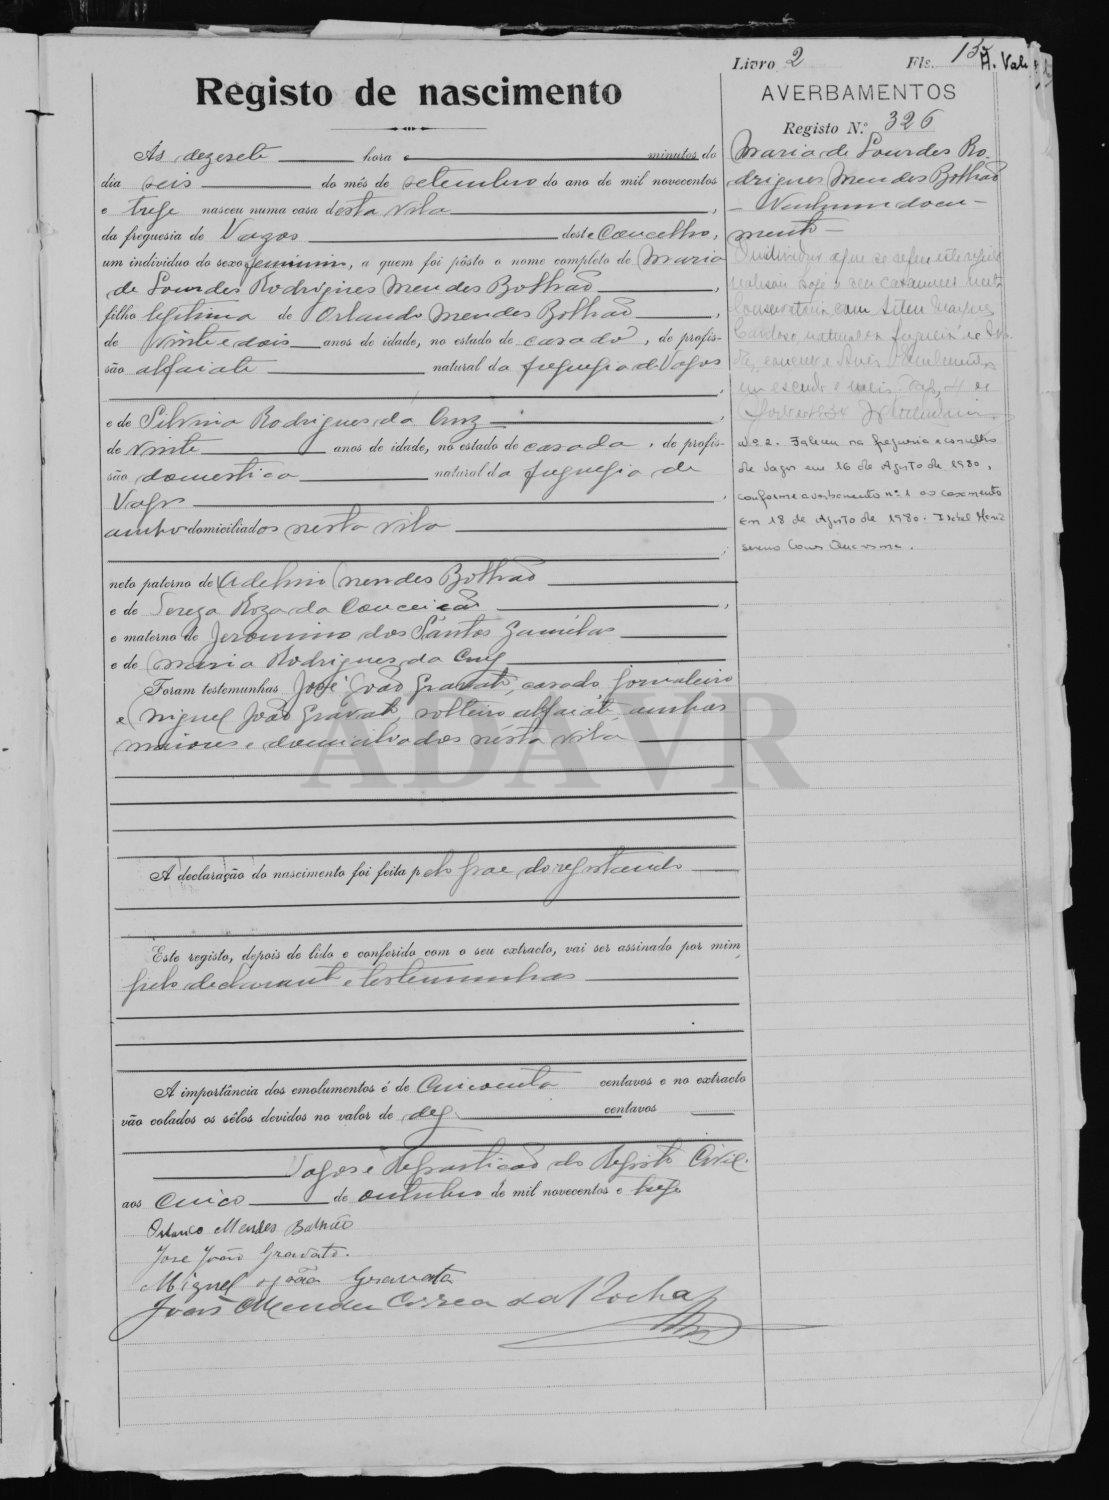 Livro 2 Fls. 15
A. Val
Registo de nascimento
AVERBAMENTOS
Registo N.º 326
Ás dezesete hora e minutos do
dia seis do mês de setembro do ano de mil novecentos
e treze nasceu numa casa desta vila,
da freguesia de Vagos deste Concelho,
um individuo do sexo feminino, a quem foi pôsto o nome completo de Maria
de Lourdes Rodrigues Mendes Bolhão,
filho legitima de Orlando Mendes Bolhão,
de vinte e dois anos de idade, no estado de casado, de profis-
são alfaiate natural da freguesia de Vagos
e de Silvina Rodrigues da Cruz,
de vinte anos de idade, no estado de casada, de profis-
são domestica natural da freguesia de
Vagos,
ambos domiciliados nesta vila
neto paterno de Adelino Mendes Bolhão
e de Tereza Roza da Conceição,
e materno de Jeronimo dos Santos
e de Maria Rodrigues da Cruz
Foram testemunhas José João Gravato, casado, jornaleiro
e Miguel João Gravato, solteiro alfaiate, ambos
maiores e domiciliados nesta vila
ADAVR
A declaração do nascimento foi feita pelo pae do registando
Este registo, depois de lido e conferido com o seu extracto, vai ser assinado por mim,
pelo declarante e testemunhas
A importância dos emolumentos é de cincoenta centavos e no extracto
vão colados os sêlos devidos no valor de dez centavos
Vagos e Repartição do Registo Civil
aos cinco de outubro de mil novecentos e treze
Orlando Mendes Bolhão
Jose João Gravato.
Miguel João Gravata
João Mendes Correa da Rocha
Maria de Lourdes Ro-
drigues Mendes Bolhão
— Nenhum docu-
mento —
O individuo a que se refere este registo
realisou hoje o seu casamento nesta
Conservatoria com
Cardoso, natural da freguesia de
um escudo e
N.º 2. Faleceu na freguesia e concelho
de Vagos em 16 de Agosto de 1980,
conforme averbamento nº 1 ao casamento
em 18 de Agosto de 1980. Isabel